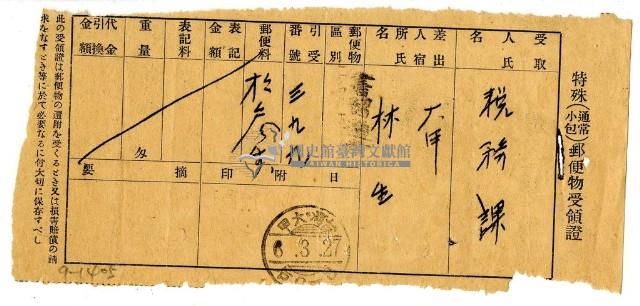 特殊(通常小包)郵便物受領證
受取人氏名
税務課
差出人宿所氏名
大甲
林生
郵便物區別
書留
引受番號
三九九
郵便料
表記金額
表記料
重量
匁
代金引換金
摘要
日附印
大甲
6.3.27
國史館臺灣文獻館
TAIWAN HISTORICA
此の受領證は郵便物の還附を受くるとき又は損害賠償の請
求をなすとき等に於て必要なるに付大切に保存すべし
9-1405